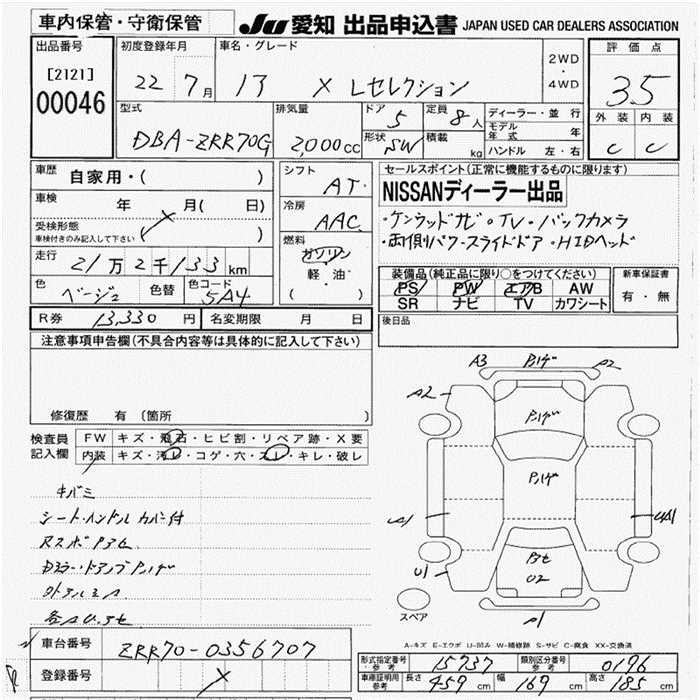 車内保管・守衛保管
JU愛知 出品申込書 JAPAN USED CAR DEALERS ASSOCIATION
出品番号
[2121]
00046
初度登録年月
22 7月
車名・グレード
13 X Lセレクション
2WD
・
4WD
評価点
3.5
外装 内装
C C
型式
DBA-ZRR70G
排気量
2,000cc
ドア 5
形状 SW
定員 8人
積載 kg
ディーラー・並行
モデル年式 年
ハンドル 左・右
車歴
自家用・( )
車検 年 月( 日)
受検形態
車検付きのみ記入して下さい ( )
走行 21万2千133km
色 ベージュ 色替 色コード 5A4
シフト
AT
冷房
AAC
燃料
ガソリン
軽油
( )
セールスポイント(正常に機能するものに限ります)
NISSANディーラー出品
・ケンウッドナビ・TV・バックカメラ
・両側パワースライドドア・HIDヘッド
装備品(純正品に限り○をつけてください)
PS PW エアB AW
SR ナビ TV カワシート
新車保証書
有・無
後日品
R券 13,330円 名変期限 月 日
注意事項申告欄(不具合内容等は具体的に記入して下さい)
修復歴 有(箇所 )
検査員記入欄
FW キズ・飛石・ヒビ割・リペア跡・X要
内装 キズ・汚レ・コゲ・穴・スレ・キレ・破レ
キバミ
シート・ハンドルカバー付
A3 A2
A2
A1
U1
U2
A1
スペア
A-キズ E-エクボ U-凹み W-補修跡 S-サビ C-腐食 XX-交換済
車台番号 ZRR70-0356707
登録番号
形式指定番号 参考 15737
類別区分番号 参考 0196
車庫証明用 参考 長さ 459cm 幅 169cm 高さ 185cm